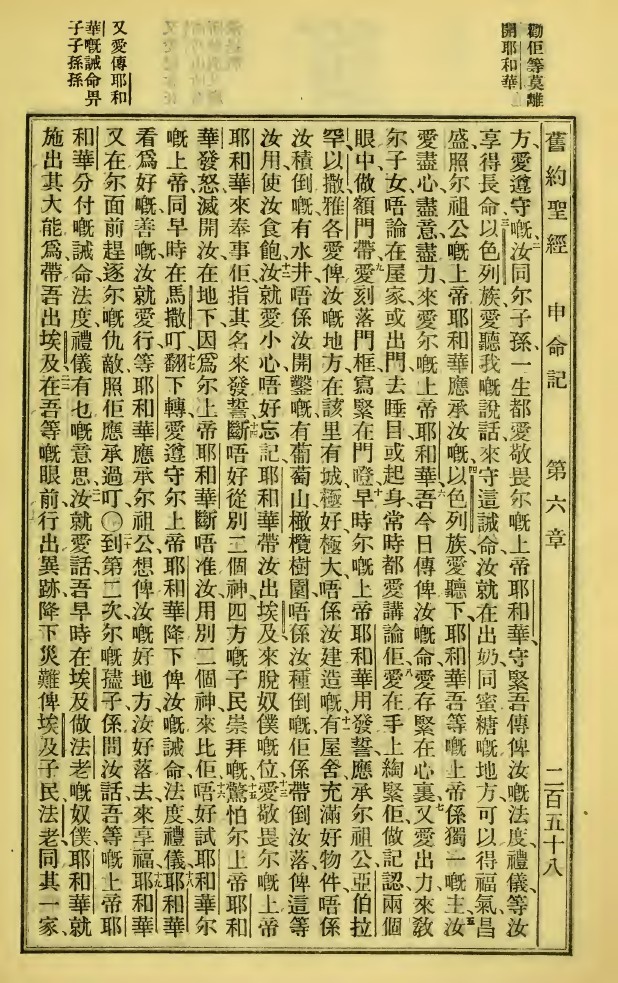 勸佢等莫離
開耶和華
又愛傳耶和
華嘅誡命畀
子子孫孫
舊約聖經 申命記 第六章 二百五十八
方愛遵守嘅汝同尔子孫一生都愛敬畏尔嘅上帝耶和華守緊吾傳俾汝嘅法度禮儀等汝
享得長命以色列族愛聽我嘅說話來守這誡命汝就在出奶同蜜糖嘅地方可以得福氣昌
盛照尔祖公嘅上帝耶和華應承汝嘅以色列族愛聽下耶和華吾等嘅上帝係獨一嘅主汝
愛盡心盡意盡力來愛尔嘅上帝耶和華吾今日傳俾汝嘅命愛存緊在心裏又愛出力來敎
尔子女唔論在屋家或出門去睡目或起身常時都愛講論佢愛在手上綯緊佢做記認兩個
眼中做額門帶愛刻落門框寫緊在門磴早時尔嘅上帝耶和華用發誓應承尔祖公亞伯拉
罕以撒雅各愛俾汝嘅地方在該里有城極好極大唔係汝建造嘅有屋舍充滿好物件唔係
汝積倒嘅有水井唔係汝開鑿嘅有葡萄山橄欖樹園唔係汝種倒嘅佢係帶倒汝落俾這等
汝用使汝食飽汝就愛小心唔好忘記耶和華帶汝出埃及來脫奴僕嘅位愛敬畏尔嘅上帝
耶和華來奉事佢指其名來發誓斷唔好從別二個神四方嘅子民崇拜嘅驚怕尔上帝耶和
華發怒滅開汝在地下因爲尔上帝耶和華斷唔准汝用別二個神來比佢唔好試耶和華尔
嘅上帝同早時在馬撒叮翻下轉愛遵守尔上帝耶和華降下俾汝嘅誡命法度禮儀耶和華
看爲好嘅善嘅汝就愛行等耶和華應承尔祖公想俾汝嘅好地方汝好落去來享福耶和華
又在尔面前趕逐尔嘅仇敵照佢應承過叮〇到第二次尔嘅孻子係問汝話吾等嘅上帝耶
和華分付嘅誡命法度禮儀有乜嘅意思汝就愛話吾早時在埃及做法老嘅奴僕耶和華就
施出其大能爲帶吾出埃及在吾等嘅眼前行出異跡降下災難俾埃及子民法老同其一家